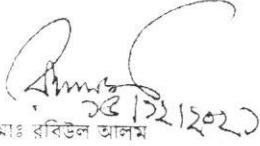 ১৫/১২/২০২১
মোঃ রবিউল আলম